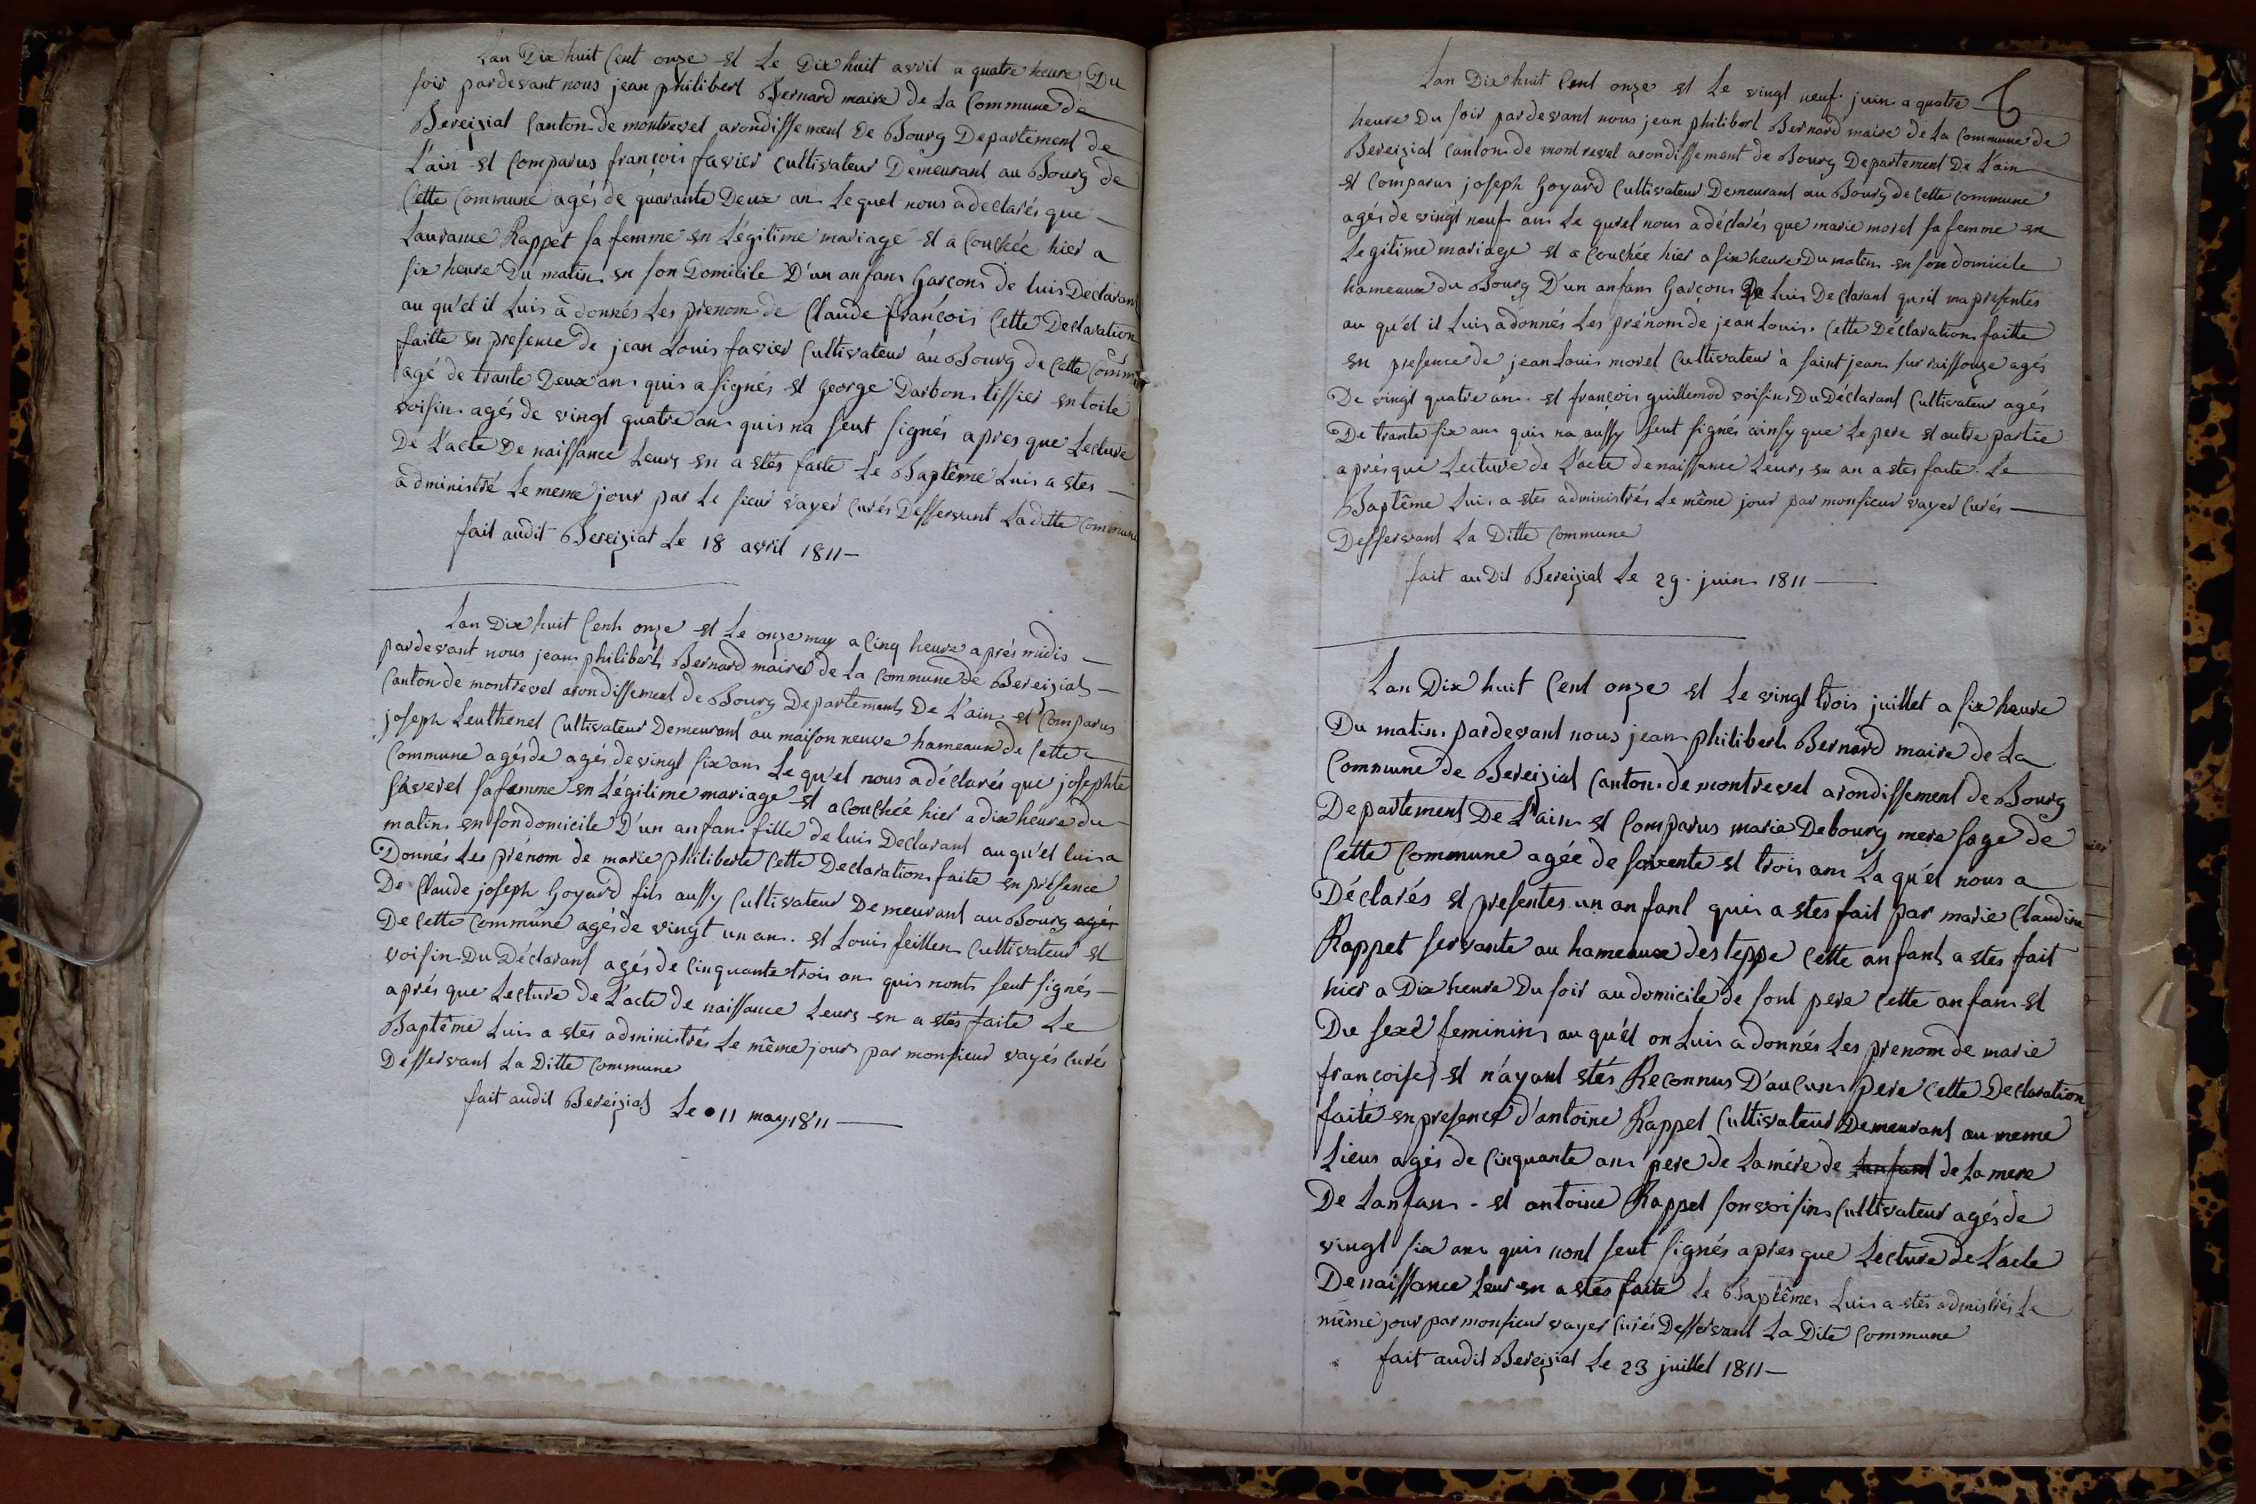 Lan Dix huit Cent onze et Le Dix huit avril a quatre heure Du
soir pardevant nous jean philibert Bernard maire de La Commune de
Bereiziat Canton de montrevel arondissement de Bourg Departement de
L'ain et Comparus françois favier Cultivateur Demeurant au Bourg de
Cette Commune agés de quarante Deux an Lequel nous a declarés que
Laurance Rappet sa femme en Légitime mariage et a Couchée hier a
six heure Du matin en son Domicile D'un anfans Garcons de luis Declarant
au qu'el il Luis à donnés Les prenom de Claude françois Cette Declaration
faitte en presence de jean Louis favier Cultivateur áu Bourg de Cette Commune
agé de trante Deux an quis a signés et George Darbon tissier en toile
voisin agés de vingt quatre an quis na seut signés apres que Lecture
De L'acte De naissance Leurs en a etés faite Le Baptême Luis a etes
administré Le meme jour par Le sieur vayer Curés Deffervant Laditte Commune
fait audit Bereiziat Le 18 avril 1811
Lan Dix huit Cent onze et Le onze may a Cinq heure aprés midis
pardevant nous jean philibert Bernard maire de La Commune de Bereiziat
Canton de montrevel arondissement de Bourg Departement De L'ain et Comparus
joseph Leuthenet Cultivateur Demeurant au maison neuve hameaux de Cette
Commune agés de agés de vingt six ans Le qu'el nous a déclarés que josephte
faverel sa femme en Légitime mariage et a couchée hier a dix héure du
matin en son domicile D'un anfans fille de luis Declarant auqu'el luis a
Donnés Les prénom de marie philiberte Cette Declaration faite en présence
De Claude joseph Goyard fils aussy Cultivateur Demeurant au Bourg agés
De Cette Commune agés de vingt un an. et Louis feillen Cultivateur et
voisin Du Déclarant agés de Cinquante trois an quis nont seut signés
aprés que Lecture de L'acte de naissance Leurs en a etés faite Le
Baptême Luis a etes administrés Le même jour par monsieur vayés curés
Déffervant La Ditte Commune
fait audit Bereiziat Le 11 may 1811
Lan Dix huit Cent onze et Le vingt neuf juin a quatre
heure Du soir pardevant nous jean philibert Bernard maire de La Commune de
Bereiziat Canton de montrevel arondissement de Bourg Departement De L'ain
et Comparus joseph Goyard Cultivateur Demeurant au Bourg de Cette Commune
agés de vingt neuf ans Le qurel nous a déclarés que marie morel sa femme en
Legitime mariage et a Couchée hier a six heure Du matin en son domicile
hameaux du Bourg D'un anfans Garçons De Luis Declarant qu'il ma presentes
au qu'el il Luis a donnés Les prénom de jean Louis. Cette Déclaration faitte
en presence de jean Louis morel Cultivateur à saint jean sur raissouze agés
De vingt quatre an. et françois guillemod voisin Du Déclarant Cultivateur agés
De trante six ans quis na aussy seut signés ainsy que Le pere et autre partie
aprés que Lecture de L'acte de naissance Leurs en an a etes faite. Le
Baptême Luis a etes administrés Le même jour par monsieur vayer Curés
Deffervant La Ditte Commune
fait au Dit Bereizial Le 29. juin 1811
Lan Dix huit Cent onze et Le vingt trois juillet a six heure
Du matin pardevant nous jean philibert Bernard maire de La
Commune de Bereizial Canton de montrevel arondissement de Bourg
Departement De L'ain et Comparus marie Debourg mere sage de
Cette Commune agée de soixente et trois ans La qu'el nous a
Déclarés et presentes un anfant quis a etes fait par marie Claudine
Rappet servante au hameaux des teppe Cette anfant a etes fait
hier a Dix heure Du soir au domicile de sont pere Cette anfans et
Du sexe feminin au qu'el on Luis a donnés Les prenom de marie
françoise et n'ayant etés Reconnus D'aucuns pere Cette Declaration
faite en presance d'antoine Rappet Cultivateur Demeurant au meme
Lieus agés de Cinquante ans pere de La mére de Lanfant de La mere
De Lanfans. et antoine Rappet son voisin Cultivateur agés de
vingt six ans quis nont seut signés apres que Lecture de L'acte
De naissance Leur en a etés faite Le Baptême Luis a etés admistrés Le
même jour par monsieur vayer Curés Deffervant La Dite Commune
fait audit Bereizial Le 23 juillet 1811